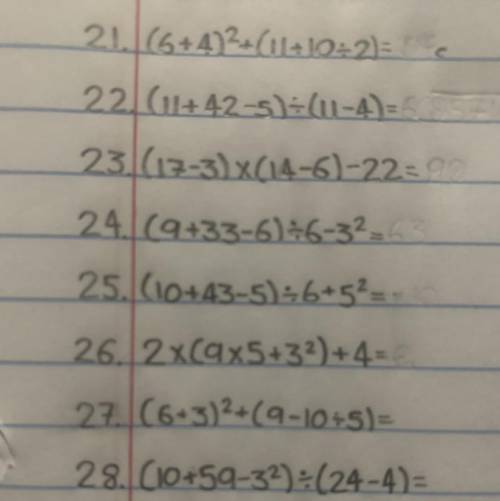 21. (6+4)²+(11+10÷2)=
22. (11+42-5)÷(11-4)=
23. (17-3)×(14-6)-22=90
24. (9+33-6)÷6-3²=
25. (10+43-5)÷6+5²=
26. 2×(9×5+3²)+4=
27. (6+3)²+(9-10÷5)=
28. (10+59-3²)÷(24-4)=